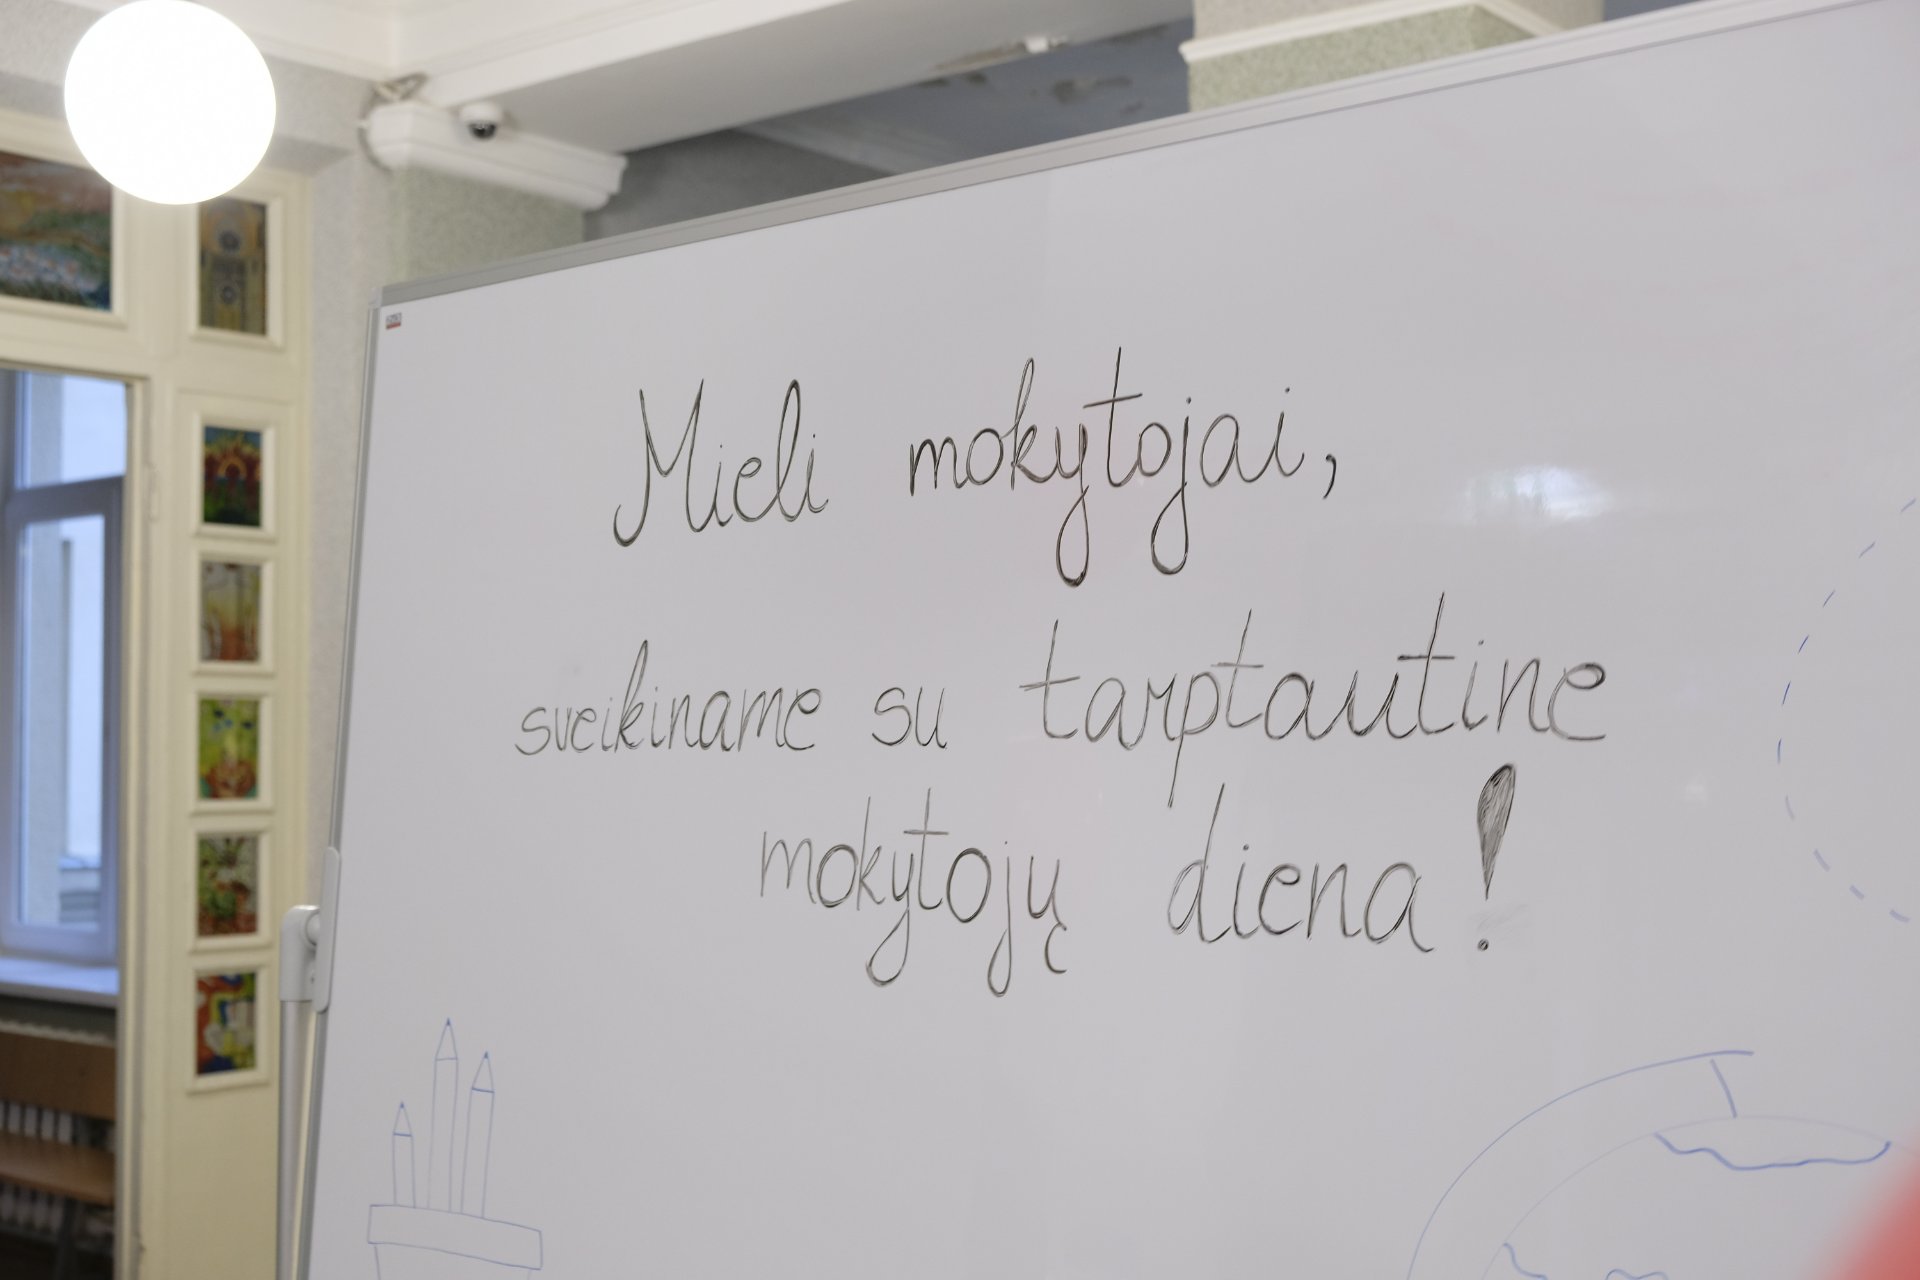 Mieli mokytojai,
sveikiname su tarptautine
mokytojų diena!